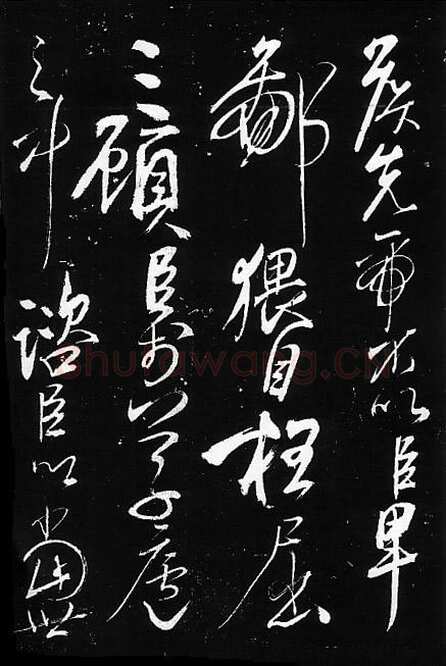 侯先帝不以臣卑
鄙猥自枉屈
三顧臣於草廬
之中諮臣以當世
Shufawang.cn